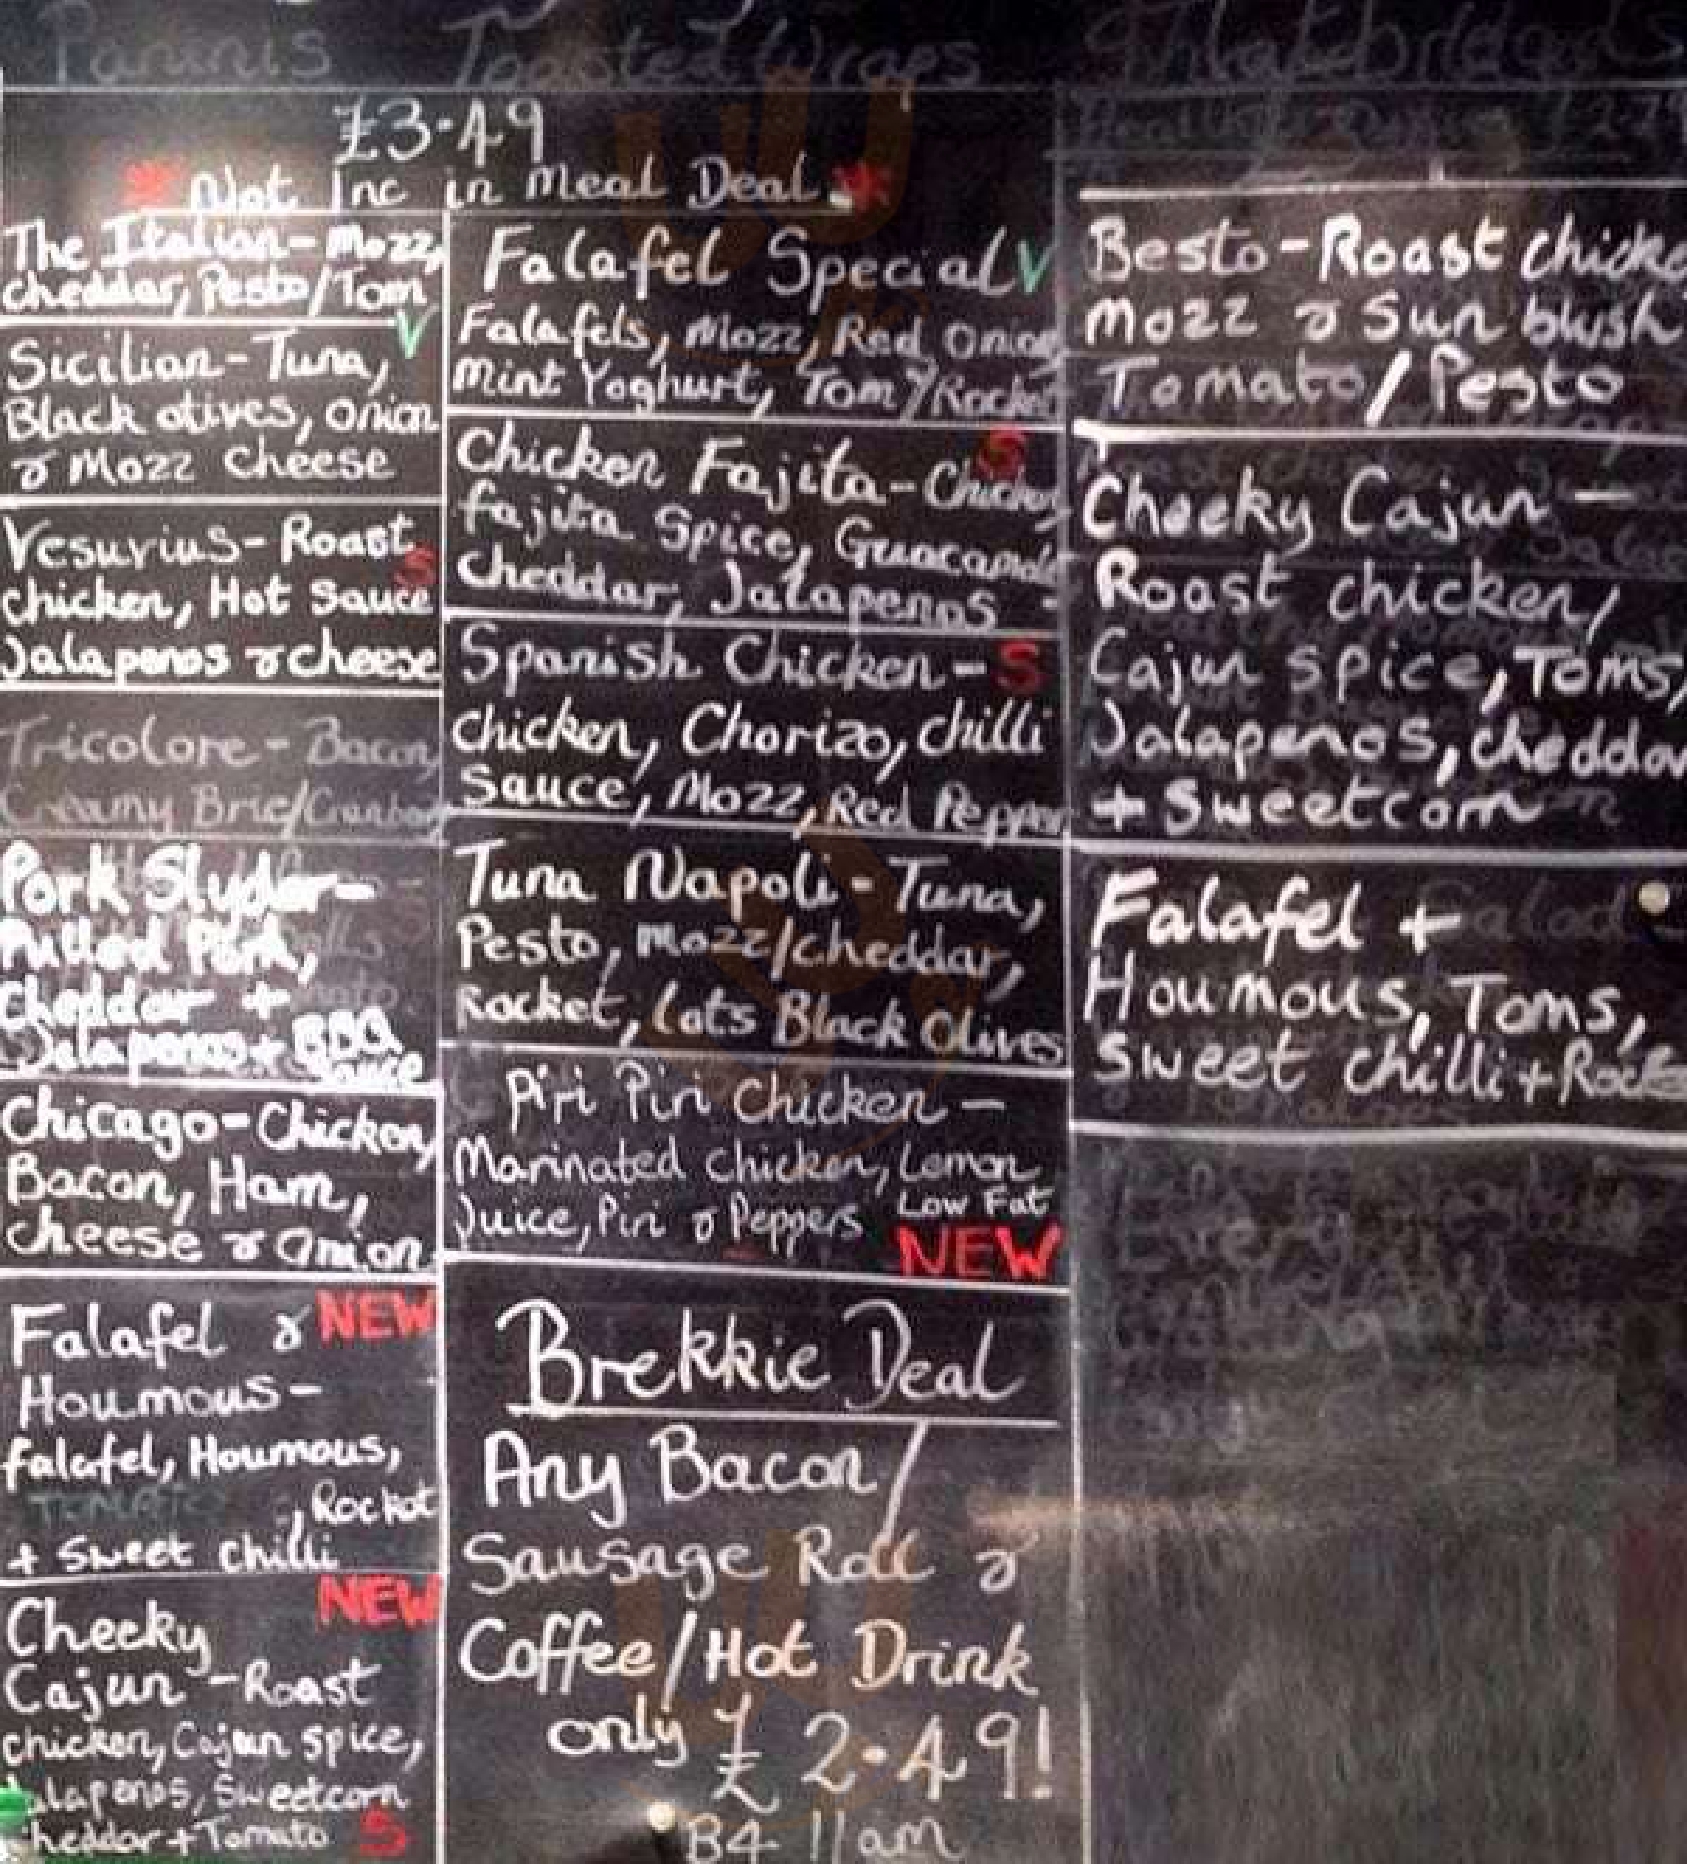 Paninis Toasted Wraps Flatbreads
£3.49
* Not Inc in Meal Deal *
The Italian - Mozz,
cheddar, Pesto/Tom
V
Sicilian - Tuna,
Black olives, onion
& Mozz Cheese
Vesuvius - Roast
chicken, Hot Sauce S
Jalapenos & cheese
Tricolore - Bacon,
Creamy Brie/Cranberry
Pork Slyder -
Pulled Pork,
Cheddar +
Jalapenos + BBQ
Sauce
Chicago - Chicken,
Bacon, Ham,
cheese & onion
Falafel & NEW
Houmous -
falafel, Houmous,
, Rocket
+ Sweet chilli
NEW
Cheeky
Cajun - Roast
chicken, Cajun spice,
alapenos, Sweetcorn
heddar + Tomato S
Falafel Special V
Falafels, Mozz, Red onion
Mint Yoghurt, Tom/Rocket
Chicken Fajita - S
fajita Spice,
Cheddar, Jalapenos
Spanish Chicken - S
Chicken, Chorizo, chilli
Sauce, Mozz, Red Pepper
Tuna Napoli - Tuna,
Pesto, Mozz/cheddar,
Rocket, lots Black Olives
Piri Piri Chicken -
Marinated chicken, Lemon
Juice, Piri & Peppers Low Fat
NEW
Brekkie Deal
Any Bacon/
Sausage Roll &
Coffee/Hot Drink
only £2.49!
B4 11am
Besto - Roast chicke
Mozz & Sun blush
Tomato/Pesto
Cheeky Cajun -
Roast chicken,
Cajun spice, Toms,
Jalapenos, cheddar
+ Sweetcorn
Falafel +
Houmous, Toms,
Sweet chilli + Rocke